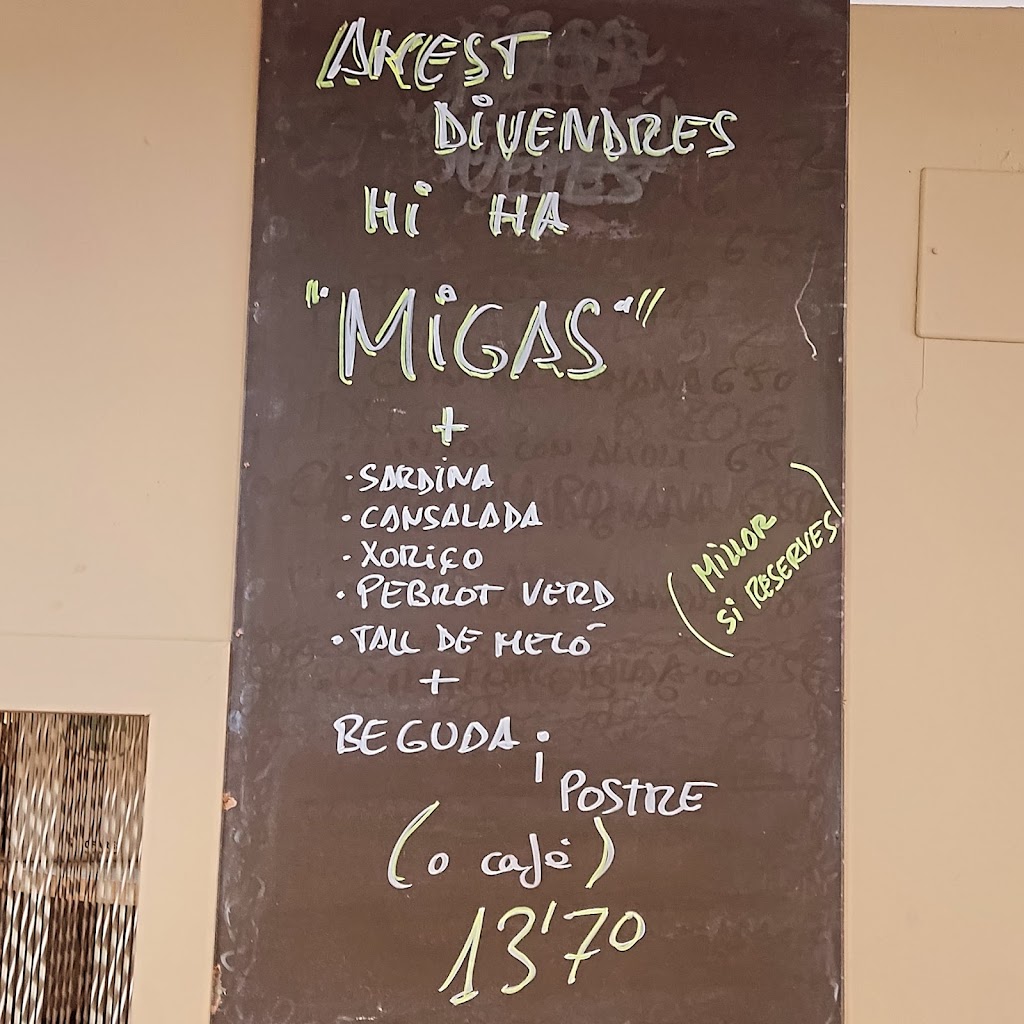 AKEST
DIVENDRES
HI HA
"MIGAS"
+
· SARDINA
· CANSALADA
· XORIÇO
· PEBROT VERD
· TALL DE MELÓ
(MILLOR
SI RESERVES)
+
BEGUDA
i
POSTRE
(o café)
13'70